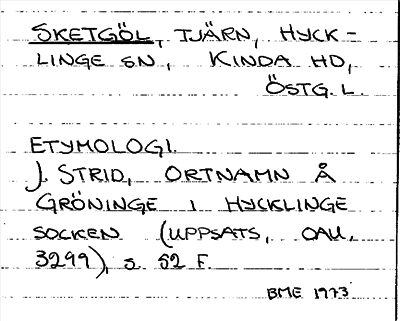 SKETGÖL, TJÄRN, HYCK-
LINGE SN, KINDA HD,
ÖSTG. L.
ETYMOLOGI.
J. STRID, ORTNAMN Å
GRÖNINGE I HYCKLINGE
SOCKEN (UPPSATS, OAU,
3299), S. 52 F.
BME 1973